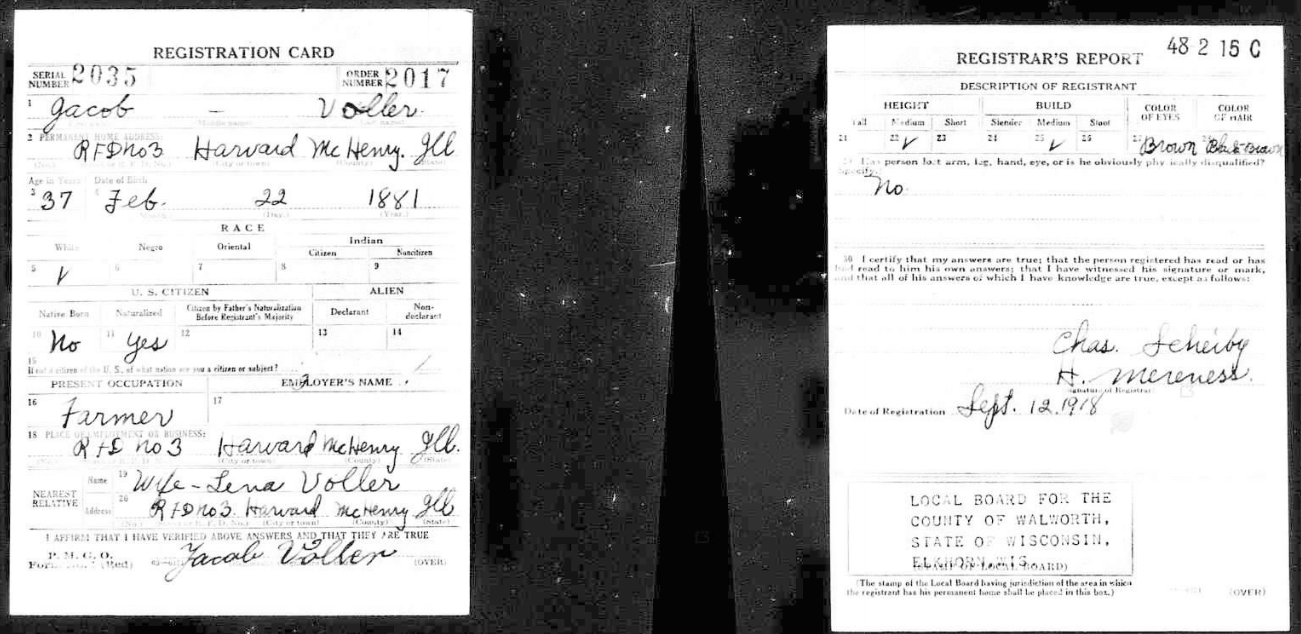 REGISTRATION CARD
SERIAL NUMBER 2035 ORDER NUMBER 2017
1 Jacob – Voller
2 PERMANENT HOME ADDRESS:
RFD no 3 Harvard McHenry. Ill
Age in Years Date of Birth
3 37 4 Feb. 22 1881
(Month.) (Day.) (Year.)
RACE
White Negro Oriental Indian
Citizen Noncitizen
5 ✓ 6 7 8 9
U. S. CITIZEN ALIEN
Native Born Naturalized Citizen by Father's Naturalization Before Registrant's Majority Declarant Non-declarant
10 No 11 Yes 12 13 14
15
If not a citizen of the U. S., of what nation are you a citizen or subject?
PRESENT OCCUPATION EMPLOYER'S NAME
16 Farmer 17
18 PLACE OF EMPLOYMENT OR BUSINESS:
RFD no 3 Harvard McHenry Ill.
(City or town) (County) (State)
NEAREST RELATIVE Name 19 Wife – Lena Voller
Address 20 RFD no 3. Harvard McHenry Ill
(No.) (Street or R. F. D. No.) (City or town) (County) (State)
I AFFIRM THAT I HAVE VERIFIED ABOVE ANSWERS AND THAT THEY ARE TRUE
P. M. G. O.
Form No. 1 (Red) Jacob Voller (OVER)
REGISTRAR'S REPORT 48 2 15 C
DESCRIPTION OF REGISTRANT
HEIGHT BUILD COLOR OF EYES COLOR OF HAIR
Tall Medium Short Slender Medium Stout
21 22 ✓ 23 24 25 ✓ 26 27 Brown 28 Brown
29 Has person lost arm, leg, hand, eye, or is he obviously physically disqualified?
Specify.
No
30 I certify that my answers are true; that the person registered has read or has
had read to him his own answers; that I have witnessed his signature or mark,
and that all of his answers of which I have knowledge are true, except as follows:
Chas. Scheiby
H. Mereness.
Signature of Registrar
Date of Registration Sept. 12. 1918
LOCAL BOARD FOR THE
COUNTY OF WALWORTH,
STATE OF WISCONSIN,
ELKHORN, WIS.
(STAMP OF LOCAL BOARD)
(The stamp of the Local Board having jurisdiction of the area in which
the registrant has his permanent home shall be placed in this box.)
(OVER)